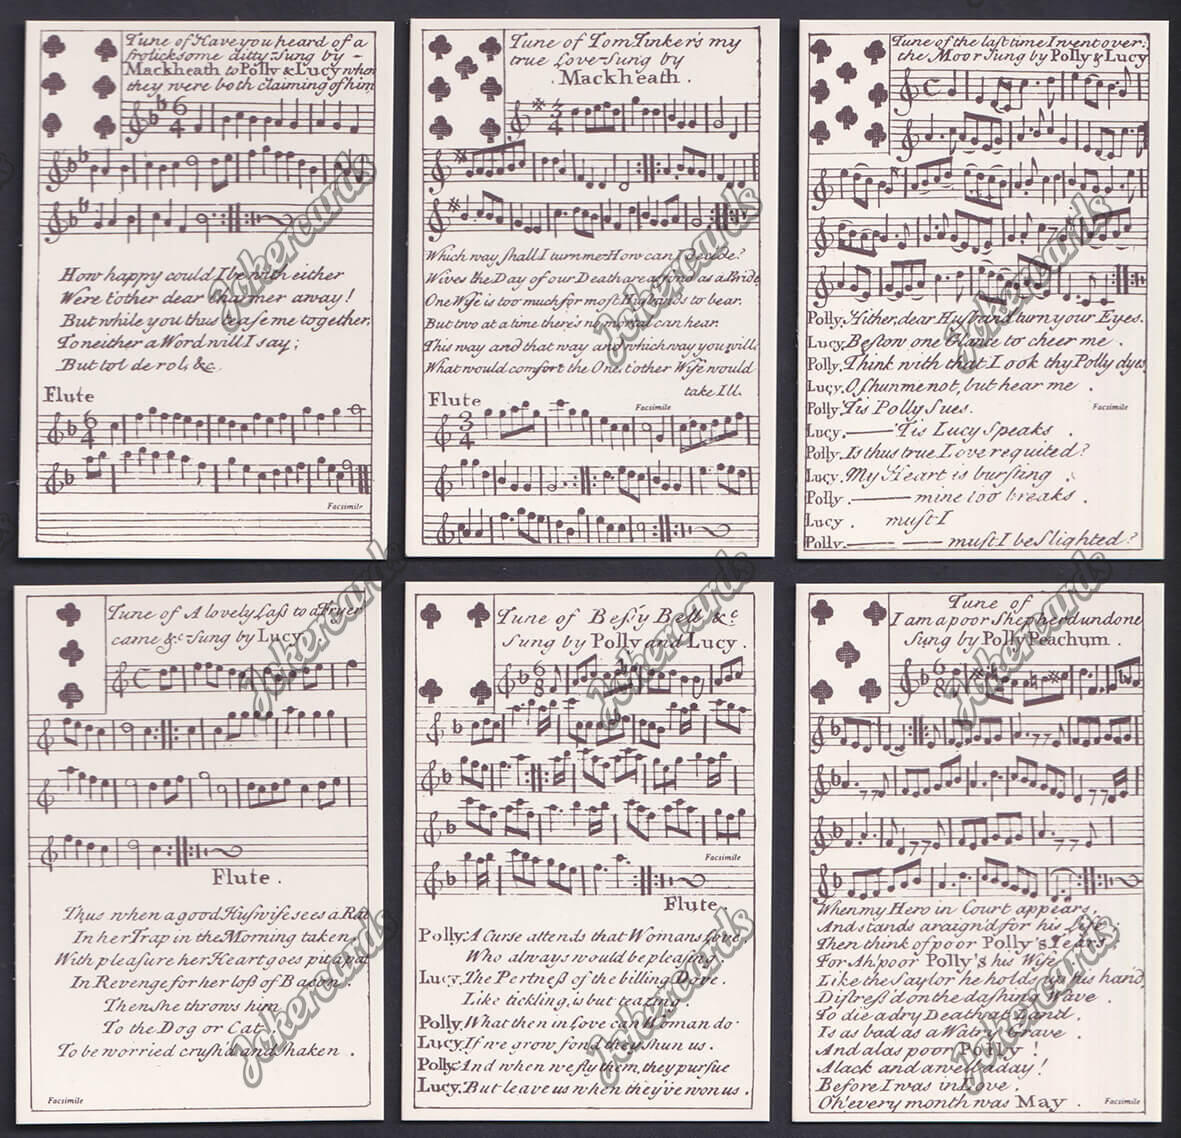 Tune of Have you heard of a
frolicksome ditty Sung by
Mackheath to Polly & Lucy when
they were both claiming of him
6
4
How happy could I be with either
Were t'other dear Charmer away!
But while you thus tease me together,
To neither a Word will I say;
But tol de rol, &c.
Flute
6
4
Facsimile
Tune of Tom Tinker's my
true Love Sung by
Mackheath.
3
4
Which way ſhall I turn me How can I decide?
Wives the Day of our Death are as fond as a Bride,
One Wife is too much for moſt Husbands to bear.
But two at a time there's no mortal can hear.
This way and that way and which way you will
What would comfort the One, t'other Wife would
take Ill.
Flute
Facsimile
3
4
Tune of the laſt time I went over:
the Moor Sung by Polly & Lucy
C
Polly. Hither, dear Husband turn your Eyes.
Lucy. Beſtow one Glance to cheer me.
Polly. Think with that Look thy Polly dyes,
Lucy. O ſhun me not, but hear me.
Polly. 'Tis Polly ſues.
Facsimile
Lucy. 'Tis Lucy ſpeaks.
Polly. Is thus true Love requited?
Lucy. My Heart is burſting
Polly. mine too breaks.
Lucy. muſt I
Polly. muſt I be ſlighted?
Tune of A lovely Laſs to a Fryer
came &c Sung by Lucy.
C
Flute.
Thus when a good Huſwife sees a Rat
In her Trap in the Morning taken,
With pleaſure her Heart goes pit a pat
In Revenge for her loſs of Bacon.
Then she throws him
To the Dog or Cat,
To be worried cruſh'd and ſhaken.
Facsimile
Tune of Beſsy Bell &c.
Sung by Polly and Lucy.
6
8
Facsimile
Flute.
Polly. A Curse attends that Womans Love,
Who always would be pleaſing
Lucy. The Pertneſs of the billing Dove,
Like tickling, is but teazing.
Polly. What then in Love can Woman do
Lucy. If we grow fond they ſhun us.
Polly. And when we fly them, they purſue
Lucy. But leave us when they've won us.
Tune of
I am a poor Shepherd undone
Sung by Polly Peachum.
6
8
When my Hero in Court appears,
And stands araign'd for his Life
Then think of poor Polly's Tears
For Ah! poor Polly's his Wife
Like the Saylor he holds up his hand,
Diſtreſs'd on the daſhing Wave.
To die a dry Death at Land,
Is as bad as a Watry Grave
And alas poor Polly!
Alack and a well a day!
Before I was in Love.
Oh! every month was May.
Facsimile
Jokercards
Jokercards
Jokercards
Jokercards
Jokercards
Jokercards
Jokercards
Jokercards
Jokercards